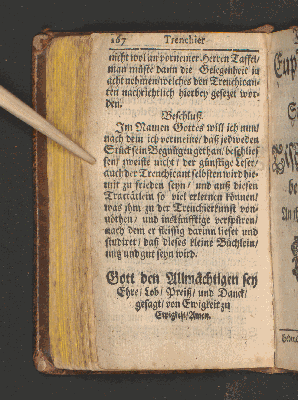 167 Trenchier
nicht wol an vornemer Herren Taffel/
man müste dann die Gelegenheit in
acht nehmen/ welches den Trenchican-
ten nachrichtlich hierbey gesezet wor-
den.
Beschluß.
Im Namen Gottes will ich nun/
nach dem ich vermeine/ daß jedweden
Stück sein Begnügen gethan/ beschlies-
sen/ zweifle nicht/ der günstige Leser/
auch der Trenchicant selbsten wird hie-
mit zu frieden seyn/ und auß diesen
Tractätlein so viel erlernen können/
was ihm zu der Trenchierkunst von-
nöthen/ und inskünfftige verspüren/
nach dem er fleissig darinn lieset und
studiret/ daß dieses kleine Büchlein/
nutz und gut seyn wird.
Gott den Allmächtigen sey
Ehre/ Lob/ Preiß/ und Danck/
gesagt/ von Ewigkeit zu
Ewigkeit/ Amen.